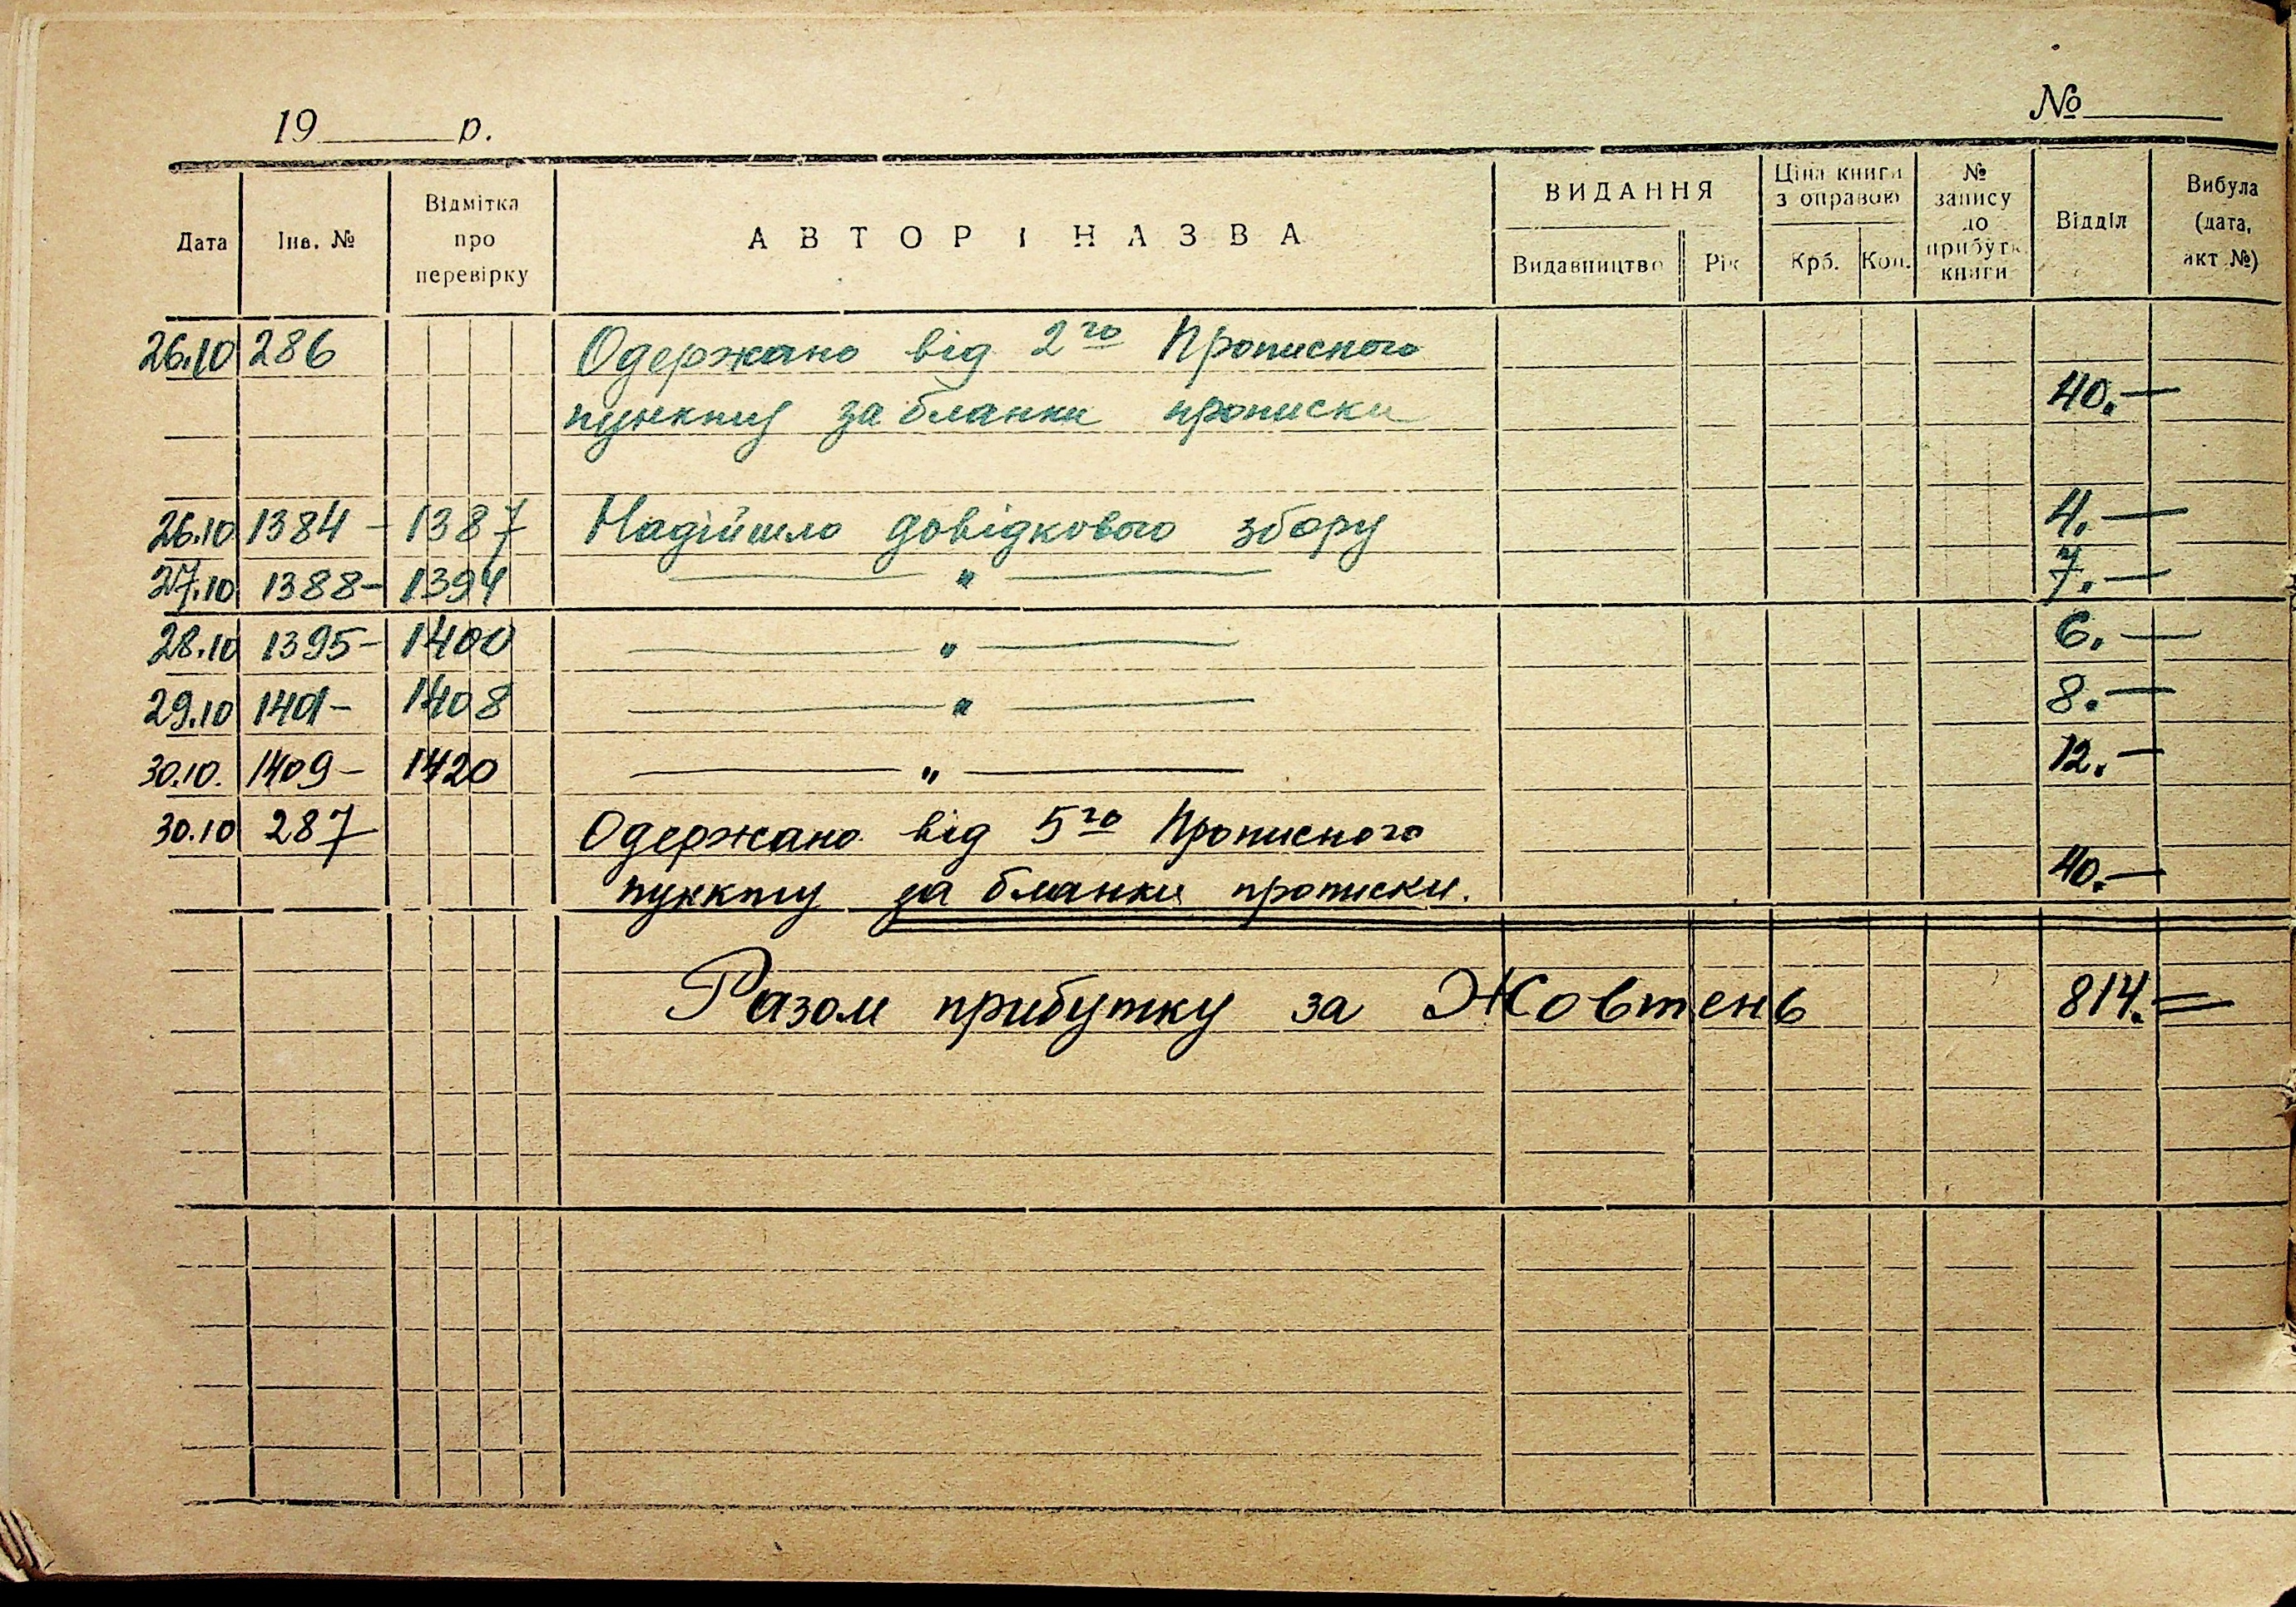 19 р. №
Дата Інв. № Відмітка про перевірку АВТОР І НАЗВА ВИДАННЯ Видавництво Рік Ціна книги з оправою Крб. Коп. № запису до прибутк. книги Відділ Вибула (дата, акт №)
26.10 286 Одержано від 2го Прописного
пункту за бланки прописки 40.—
26.10 1384 - 1387 Надійшло довідкового збору 4.—
27.10 1388- 1394 — " — 7.—
28.10 1395- 1400 — " — 6.—
29.10 1401- 1408 — " — 8.—
30.10. 1409- 1420 — " — 12.—
30.10 287 Одержано від 5го Прописного
пункту за бланки прописки. 40.—
Разом прибутку за Жовтень 814.=